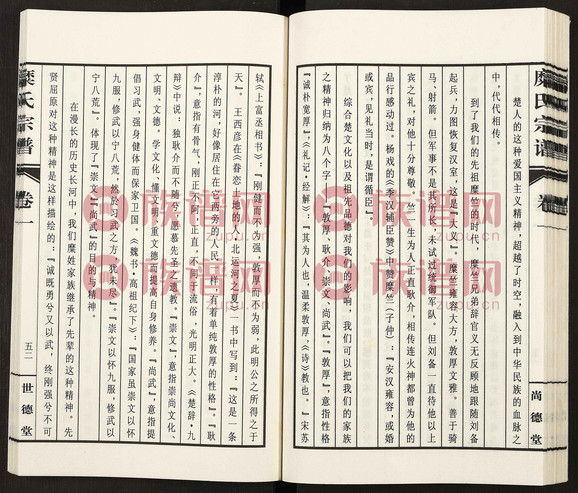 糜氏宗谱
卷一
尚德堂
楚人的这种爱国主义精神，超越了时空，融入到中华民族的血脉之
中，代代相传。
到了我们的先祖糜竺的时代，糜竺兄弟辞官义无反顾地跟随刘备
起兵，力图恢复汉室，这是『大义』。糜竺雍容大方，敦厚文雅。善于骑
马、射箭。但军事不是其所长，未试过统御军队。但刘备一直待他以上
宾之礼，对他十分尊敬。竺一生为人正直耿介，相传连火神都曾为他的
品行感动过。杨戏的《季汉辅臣赞》中赞糜竺（子仲）：『安汉雍容，或婚
或宾，见礼当时，是谓循臣』。
综合楚文化以及祖先品德对我们的影响，我们可以把我们的家族
之精神归纳为八个字：『敦厚，耿介，崇文、尚武』。『敦厚』，意指性格
『诚朴宽厚』，《礼记·经解》：『其为人也，温柔敦厚，《诗》教也。』宋苏
轼《上富丞相书》：『刚健而不为强，敦厚而不为弱，此明公之所得之于
天』。王西彦在《眷恋土地的人·北运河之夏》一书中写到：『这是一条
淳朴的河，好像居住在它西旁的人民一样，有着单纯敦厚的性格』。『耿
介』，意指有骨气，刚正不阿，正直，不同于流俗，光明正大。《楚辞·九
辩》中说：独耿介而不随兮，愿慕先圣之遗教。『崇文』，意指崇尚文化、
文明、文德。学文化、懂文明、重文德而提高自身修养。『尚武』，意指提
倡习武，强身健体而保家卫国。《魏书·高祖纪下》：『国家虽崇文以怀
九服，修武以宁八荒，然於习武之方，犹未尽。』『崇文以怀九服，修武以
宁八荒』。体现了『崇文』『尚武』的目的与精神。
在漫长的历史长河中，我们糜姓家族继承了先辈的这种精神。先
贤屈原对这种精神是这样描绘的：『诚既勇兮又以武，终刚强兮不可
糜氏宗谱
卷一
五二
世德堂
族谱网
zupu.cn
族谱网
zupu.cn
族谱网
zupu.cn
族谱网
zupu.cn